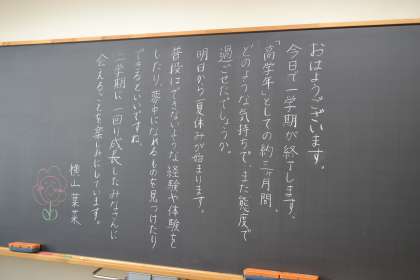 おはようございます。
今日で一学期が終了します。
「高学年」としての約三ヶ月間、
どのような気持ちで、また態度で
過ごせたでしょうか。
明日から夏休みが始まります。
普段はできないような経験や体験を
したり、夢中になれるものを見つけたり
できるといいですね。
二学期に一回り成長したみなさんに
会えることを楽しみにしています。
横山菜菜